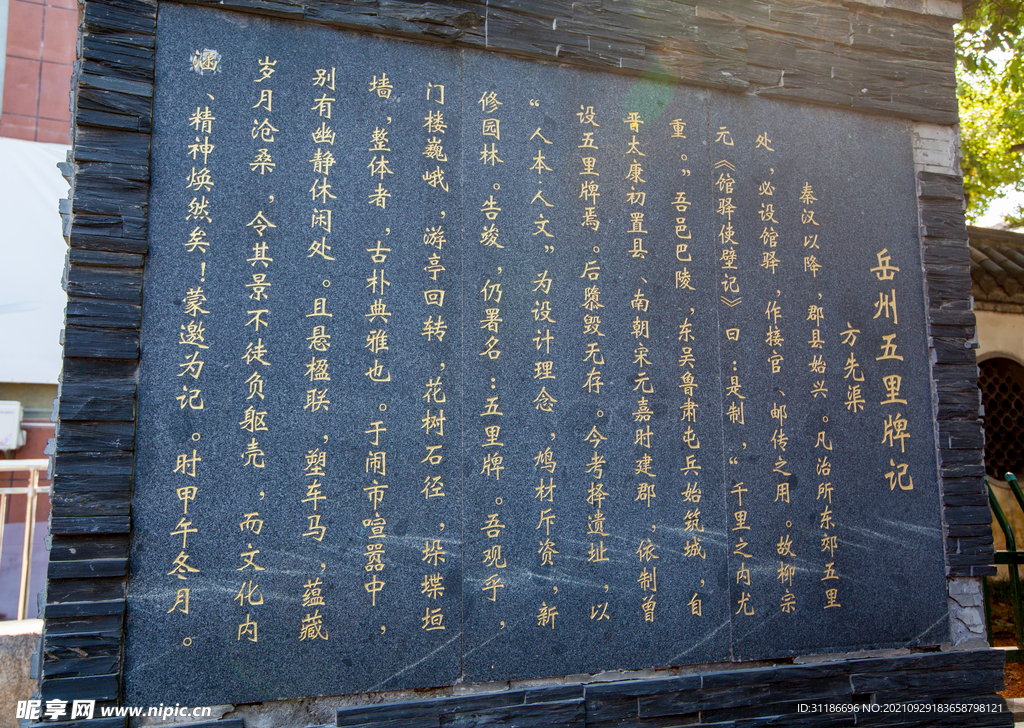 岳州五里牌记
方先渠
秦汉以降，郡县始兴。凡治所东郊五里
处，必设馆驿，作接官、邮传之用。故柳宗
元《馆驿使壁记》曰：是制，“千里之内尤
重。”吾邑巴陵，东吴鲁肃屯兵始筑城，自
晋太康初置县、南朝宋元嘉时建郡，依制曾
设五里牌焉。后隳毁无存。今考择遗址，以
“人本·人文”为设计理念，鸠材斥资，新
修园林。告竣，仍署名：五里牌。吾观乎，
门楼巍峨，游亭回转，花树石径，垛堞垣
墙，整体者，古朴典雅也。于闹市喧嚣中，
别有幽静休闲处。且悬楹联，塑车马，蕴藏
岁月沧桑，令其景不徒负躯壳，而文化内
涵、精神焕然矣！蒙邀为记。时甲午冬月。
昵享网 www.nipic.cn
ID:31186696 NO:20210929183658798121